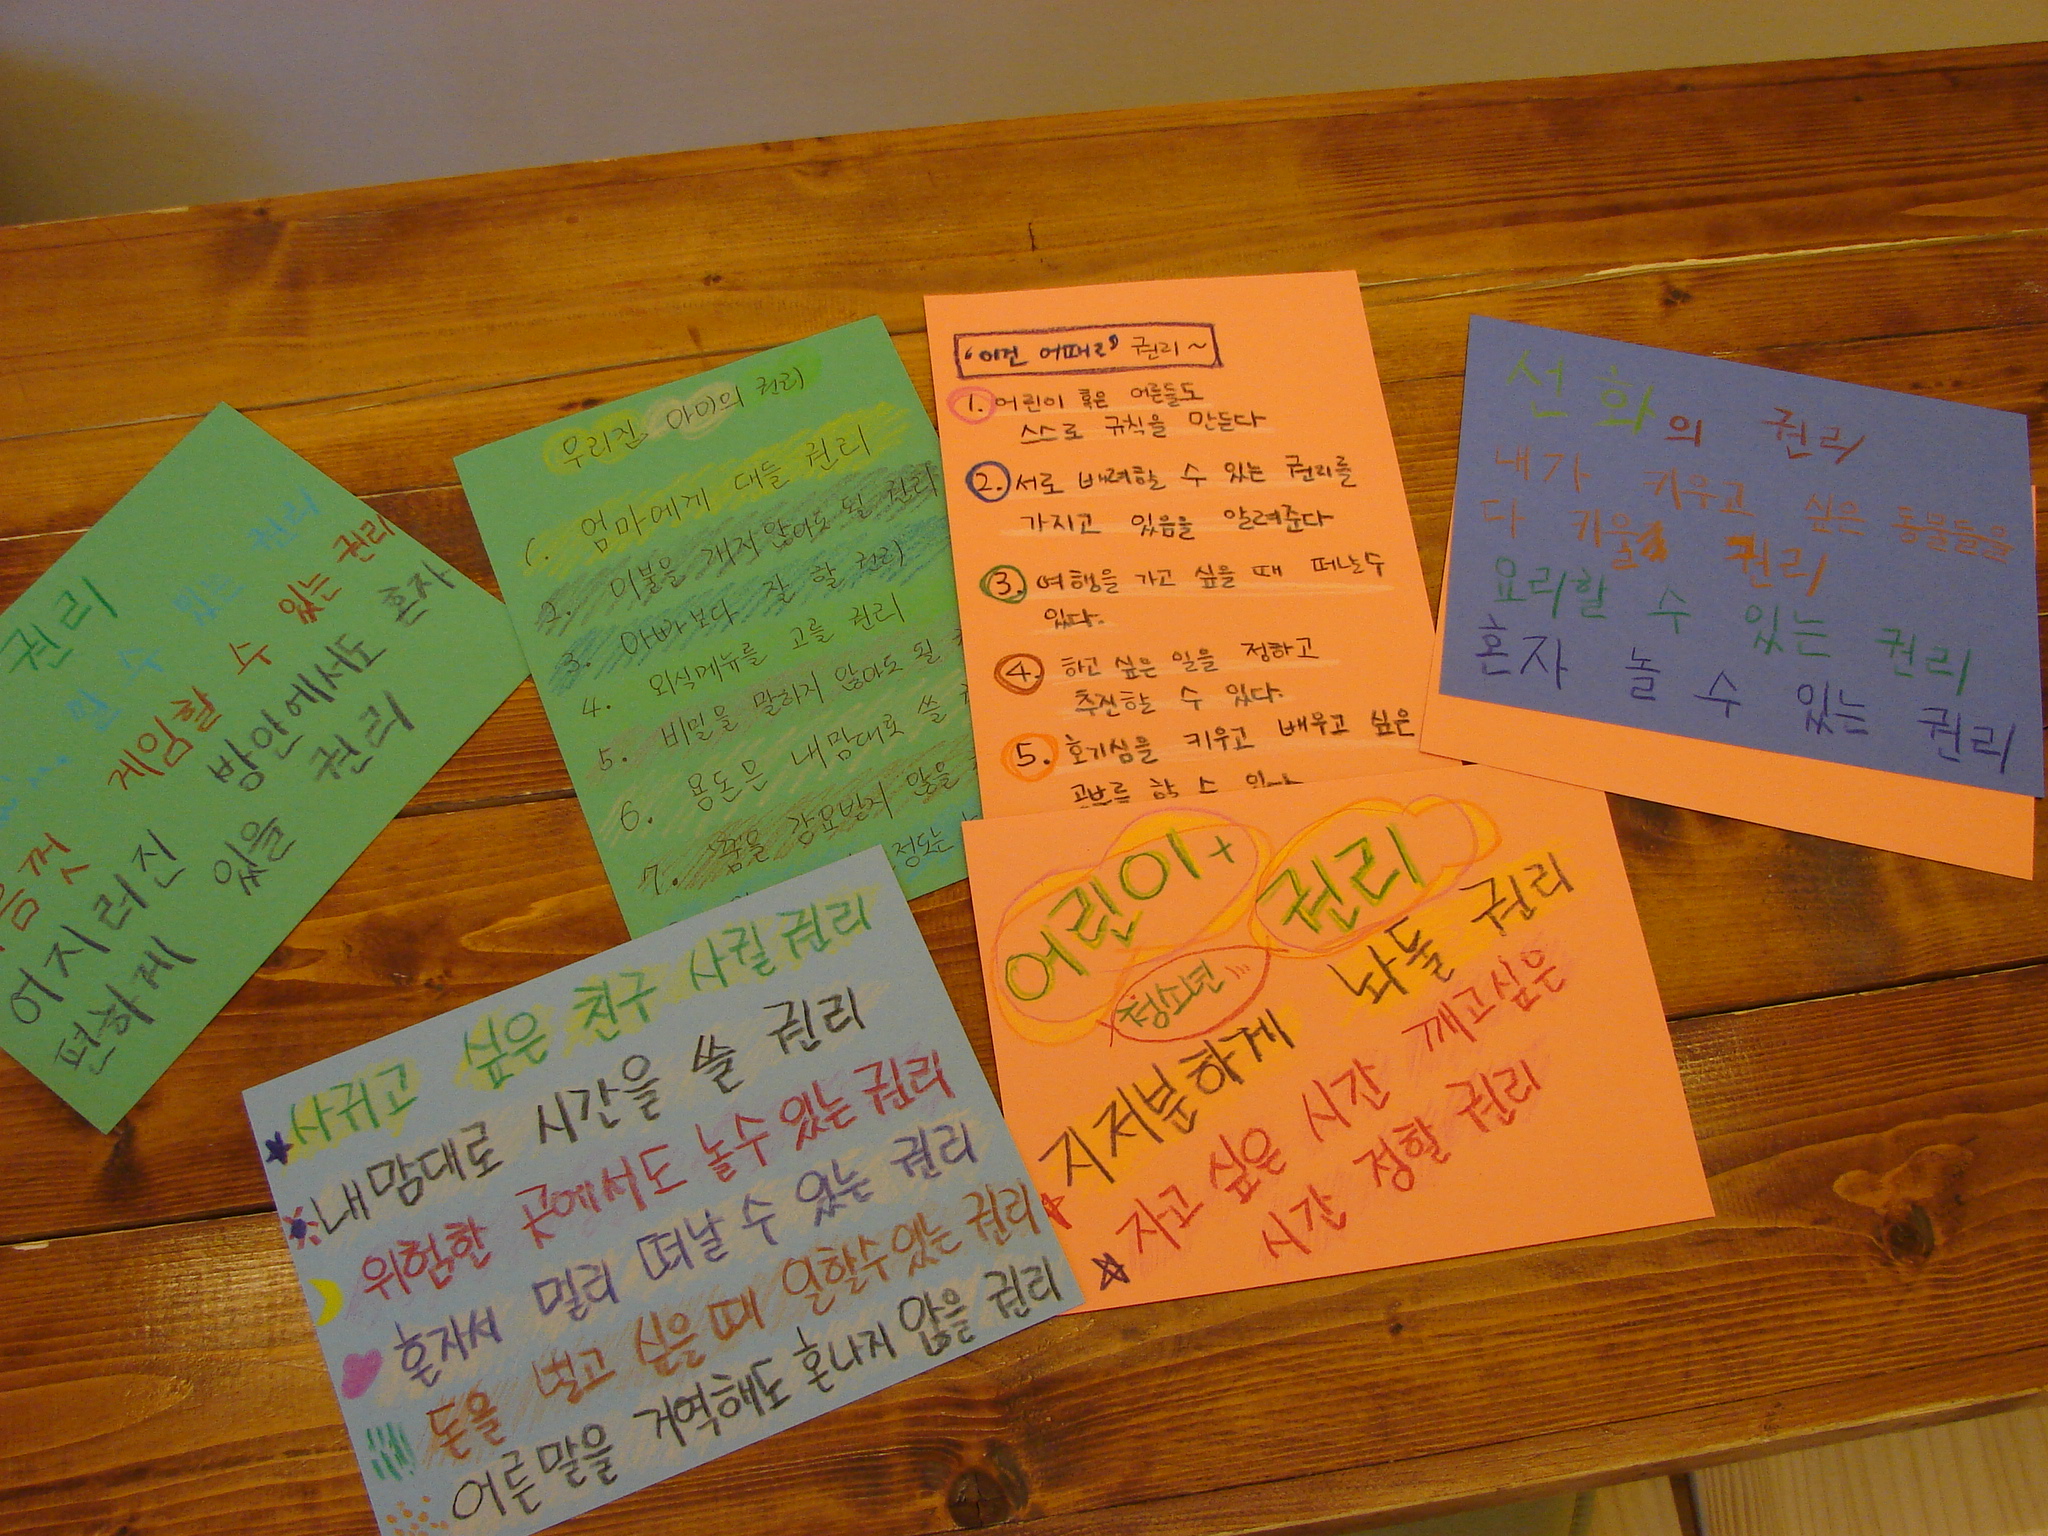 권리
수 있는 권리
게임할 수 있는 권리
방안에서도 혼자
어지러진 있을 권리
편하게
우리집 아이의 권리
1. 엄마에게 대들 권리
2. 이불을 개지 않아도 될 권리
3. 아빠보다 잘 할 권리
4. 외식메뉴를 고를 권리
5. 비밀을 말하지 않아도 될
6. 용돈은 내맘대로 쓸
7. 꿈을 강요받지 않을
정도는
'이건 어때요' 권리~
1. 어린이 혹은 어른들도
스스로 규칙을 만든다
2. 서로 배려할 수 있는 권리를
가지고 있음을 알려준다
3. 여행을 가고 싶을 때 떠날수
있다.
4. 하고 싶은 일을 정하고
추진할 수 있다.
5. 호기심을 키우고 배우고 싶은
선화의 권리
내가 키우고 싶은 동물들을
다 키울 권리
요리할 수 있는 권리
혼자 놀 수 있는 권리
사귀고 싶은 친구 사귈 권리
내맘대로 시간을 쓸 권리
위험한 곳에서도 놀수 있는 권리
혼자서 멀리 떠날 수 있는 권리
돈을 벌고 싶을 때 일할수있는 권리
어른말을 거역해도 혼나지 않을 권리
어린이+ 권리
청소년
지저분하게 놔둘 권리
자고 싶은 시간 깨고싶은
시간 정할 권리